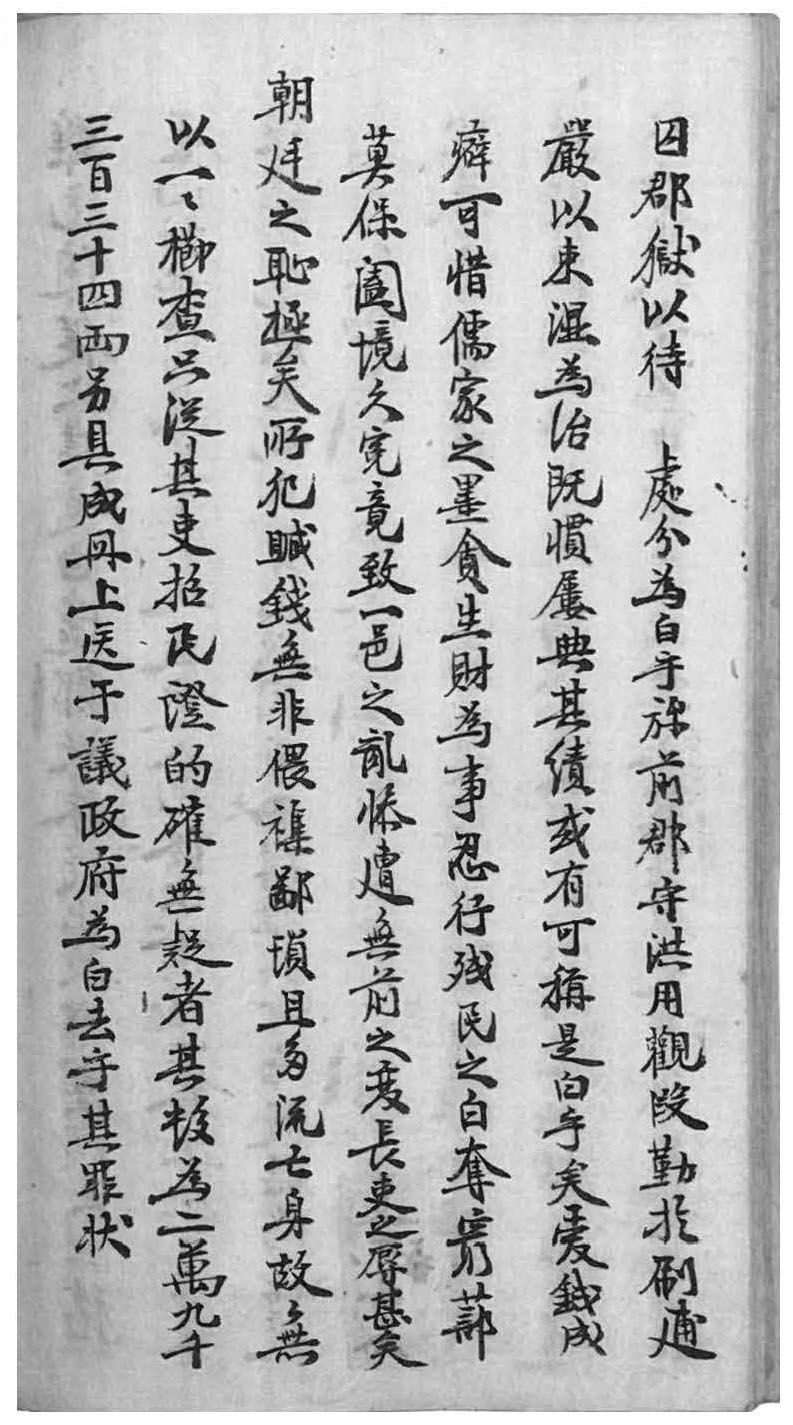 囚郡獄以待 處分為白乎旀前郡守洪用觀段勤於刷逋
嚴以束濕為治既慣屢典其績或有可稱是白乎矣愛錢成
癖可惜儒家之墨貪生財為事忍行殘民之白奪窮蔀
莫保闔境久寃竟致一邑之亂慘遭無前之變長吏之辱甚矣
朝廷之恥極矣所犯贓錢無非偎褻鄙瑣且多流亡身故無
以一〻櫛査只從其吏招民證的確無疑者其數為二萬九千
三百三十四兩另具成冊上送于議政府為白去乎其罪狀